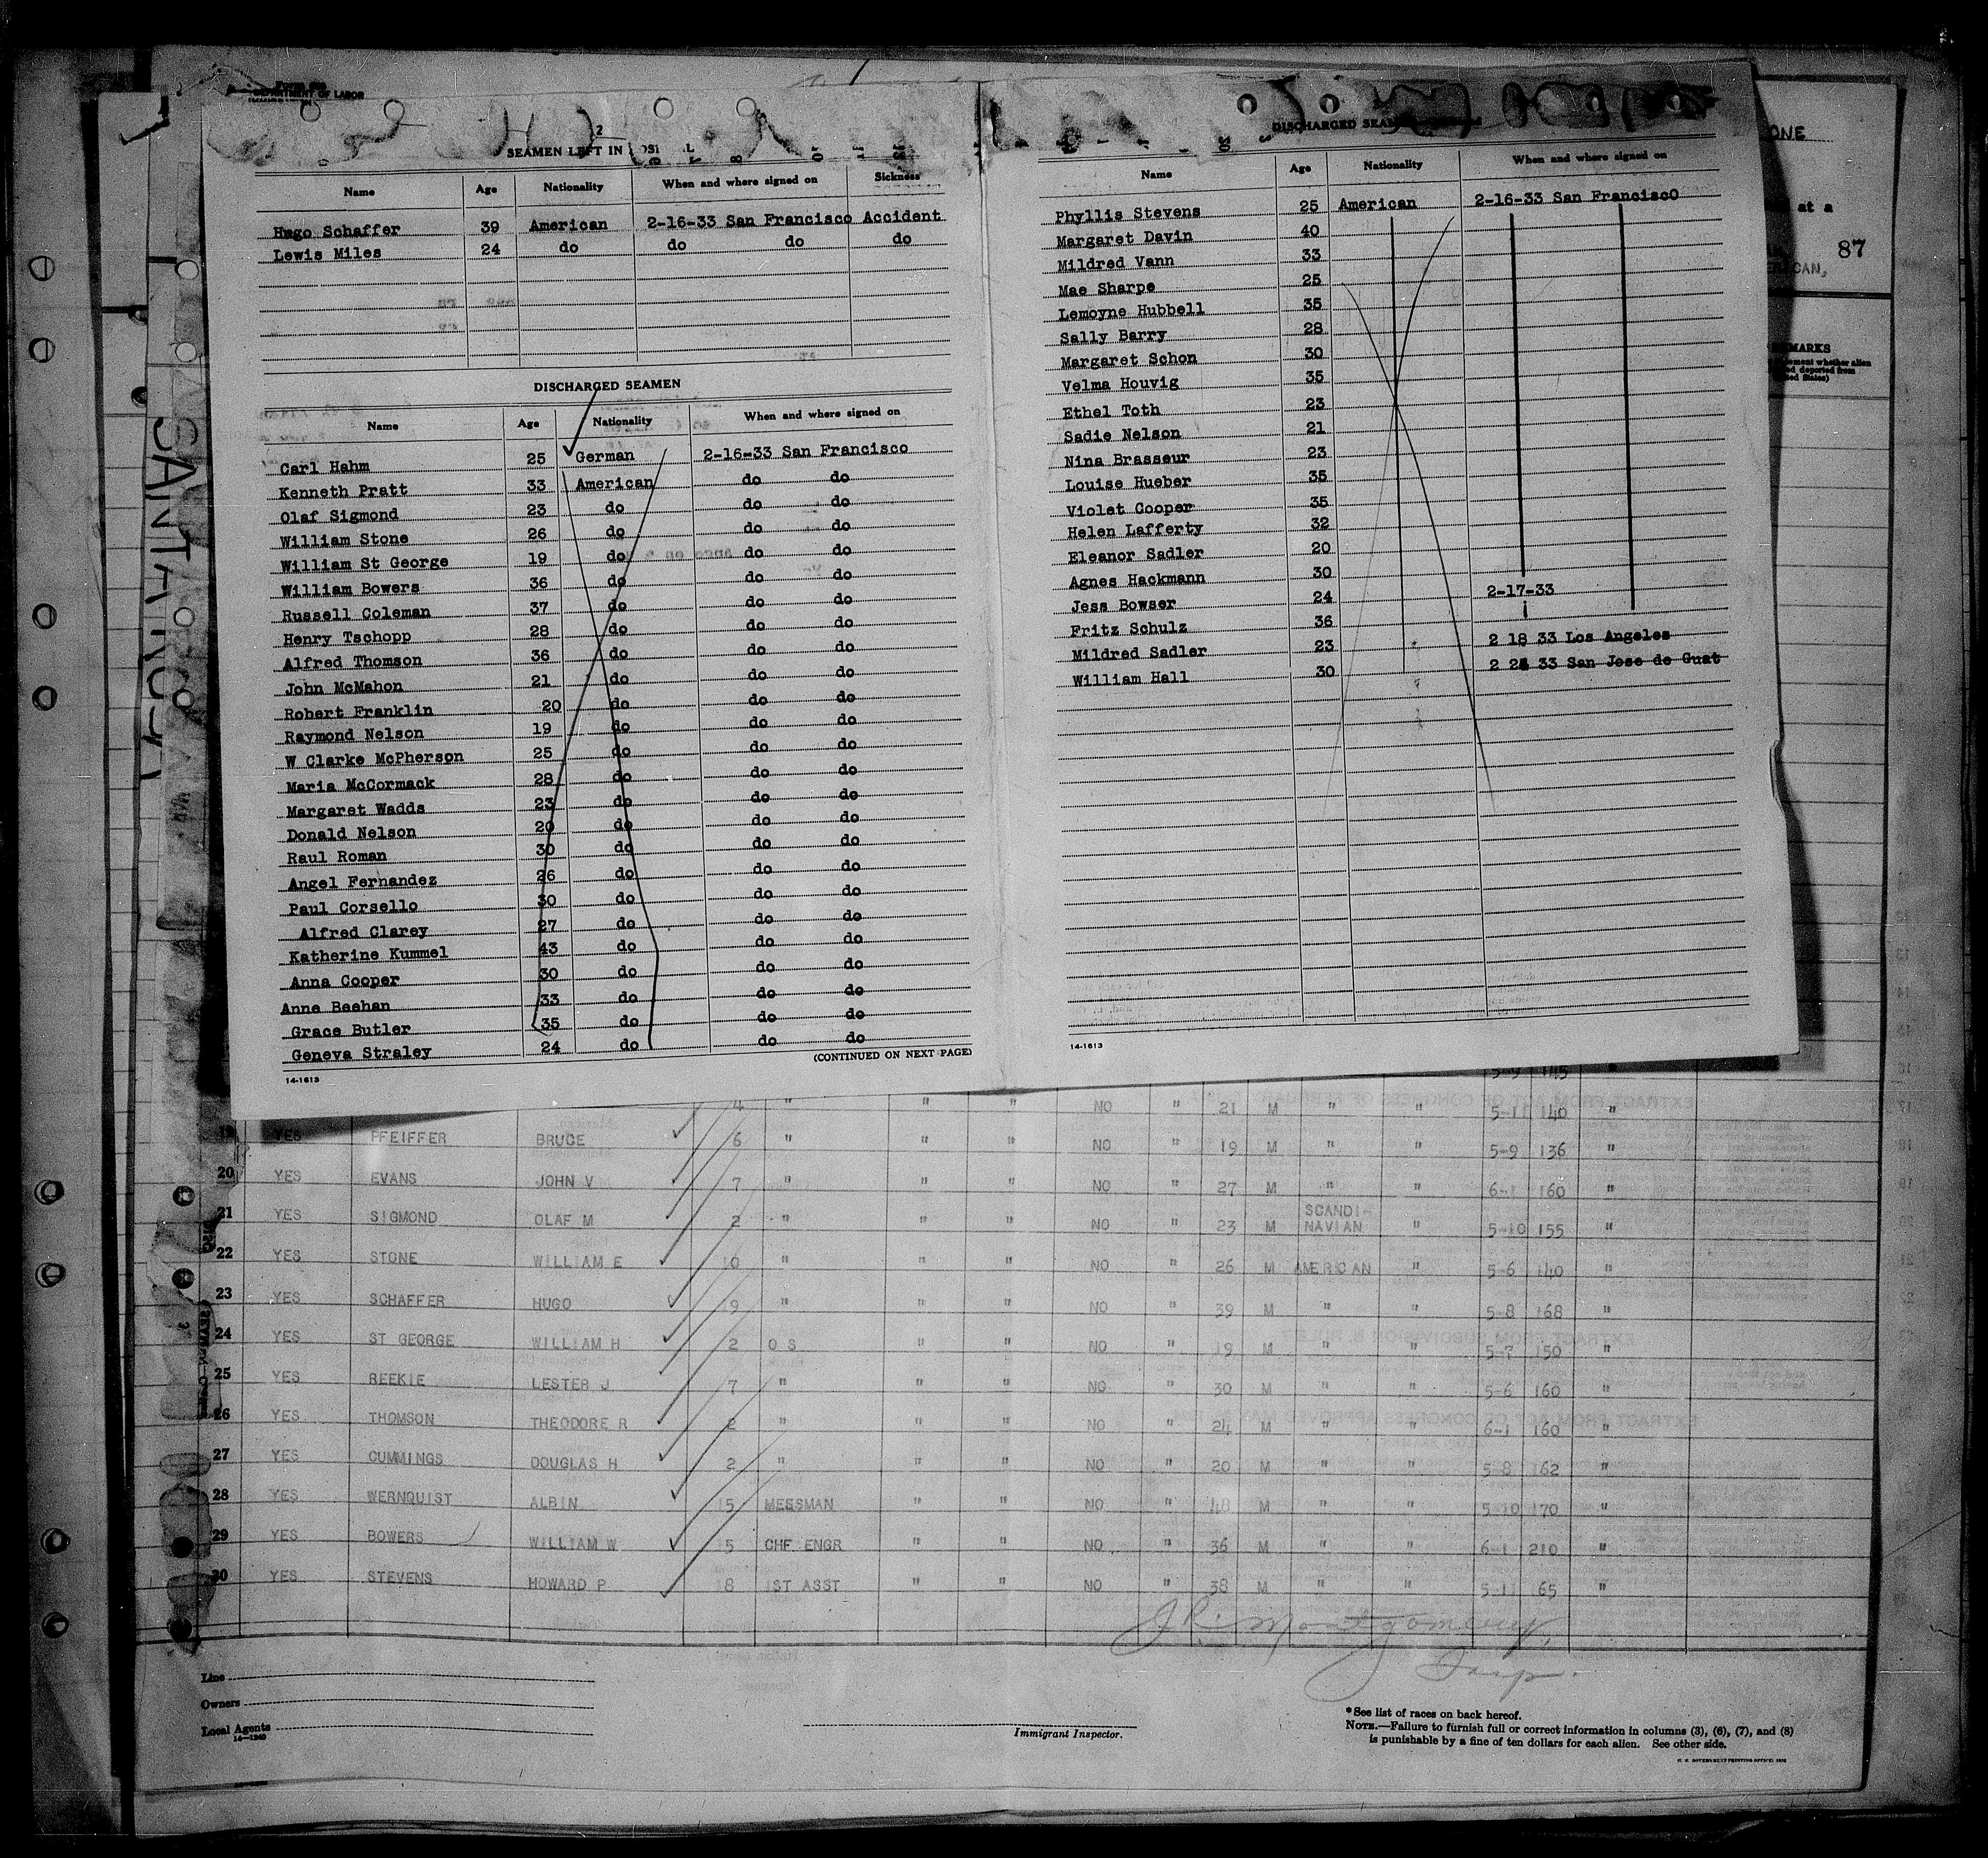 DEPARTMENT OF LABOR
2
SEAMEN LEFT IN
Name Age Nationality When and where signed on Sickness
Hugo Schaffer 39 American 2-16-33 San Francisco Accident
Lewis Miles 24 do do do do
DISCHARGED SEAMEN
Name Age Nationality When and where signed on
Carl Hahm 25 German 2-16-33 San Francisco
Kenneth Pratt 33 American do do
Olaf Sigmond 23 do do do
William Stone 26 do do do
William St George 19 do do do
William Bowers 36 do do do
Russell Coleman 37 do do do
Henry Tschopp 28 do do do
Alfred Thomson 36 do do do
John McMahon 21 do do do
Robert Franklin 20 do do do
Raymond Nelson 19 do do do
W Clarke McPherson 25 do do do
Maria McCormack 28 do do do
Margaret Wadds 23 do do do
Donald Nelson 20 do do do
Raul Roman 30 do do do
Angel Fernandez 26 do do do
Paul Corsello 30 do do do
Alfred Clarey 27 do do do
Katherine Kummel 43 do do do
Anna Cooper 30 do do do
Anne Beehan 33 do do do
Grace Butler 35 do do do
Geneva Straley 24 do do do
(CONTINUED ON NEXT PAGE)
14-1613
DISCHARGED
Name Age Nationality When and where signed on
Phyllis Stevens 25 American 2-16-33 San Francisco
Margaret Davin 40
Mildred Vann 33
Mae Sharpe 25
Lemoyne Hubbell 35
Sally Barry 28
Margaret Schon 30
Velma Houvig 35
Ethel Toth 23
Sadie Nelson 21
Nina Brasseur 23
Louise Hueber 35
Violet Cooper 35
Helen Lafferty 32
Eleanor Sadler 20
Agnes Hackmann 30
Jess Bowser 24 2-17-33
Fritz Schulz 36
Mildred Sadler 23 2 18 33 Los Angeles
William Hall 30 2 33 San Jose de Guat
14-1613
ONE
at a
87
CAN,
MARKS
SANTA LUCIA
5-9 145 "
4 " " " NO " 21 M " " 5-11 140 "
19 YES PFEIFFER BRUCE 6 " " " NO " 19 M " " 5-9 136 "
20 YES EVANS JOHN V 7 " " " NO " 27 M " " 6-1 160 "
21 YES SIGMOND OLAF M 2 " " " NO " 23 M SCANDI-NAVIAN " 5-10 155 "
22 YES STONE WILLIAM E 10 " " " NO " 26 M AMERICAN " 5-6 140 "
23 YES SCHAFFER HUGO 9 " " " NO " 39 M " " 5-8 168 "
24 YES ST GEORGE WILLIAM H 2 O S " " NO " 19 M " " 5-7 150 "
25 YES REEKIE LESTER J 7 " " " NO " 30 M " " 5-6 160 "
26 YES THOMSON THEODORE R 2 " " " NO " 24 M " " 6-1 160 "
27 YES CUMMINGS DOUGLAS H 2 " " " NO " 20 M " " 5-8 162 "
28 YES WERNQUIST ALBIN 15 MESSMAN " " NO " 48 M " " 5-10 170 "
29 YES BOWERS WILLIAM W 15 CHF ENGR " " NO " 36 M " " 6-1 210 "
30 YES STEVENS HOWARD P 18 1ST ASST " " NO " 38 M " " 5-11 65 "
J R. Montgomery
Insp.
Line
Owners
Local Agents
14-1240
Immigrant Inspector.
*See list of races on back hereof.
NOTE.—Failure to furnish full or correct information in columns (3), (6), (7), and (8)
is punishable by a fine of ten dollars for each alien. See other side.